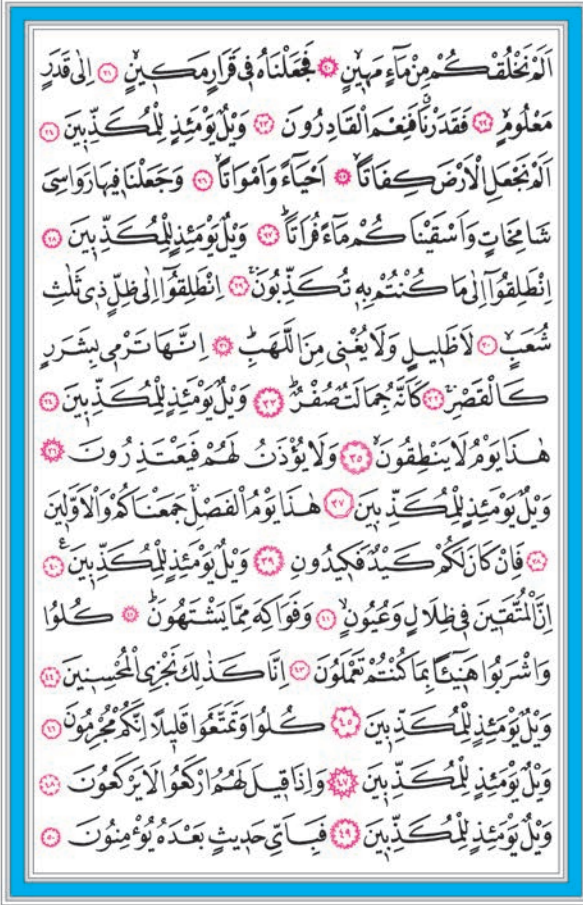 اَلَمْ نَخْلُقْكُمْ مِنْ مَٓاءٍ مَهٖينٍۙ ﴿٢٠﴾ فَجَعَلْنَاهُ فٖي قَرَارٍ مَكٖينٍۙ ﴿٢١﴾ اِلٰى قَدَرٍ
مَعْلُومٍۙ ﴿٢٢﴾ فَقَدَرْنَاۗ فَنِعْمَ الْقَادِرُونَ ﴿٢٣﴾ وَيْلٌ يَوْمَئِذٍ لِلْمُكَذِّبٖينَ ﴿٢٤﴾
اَلَمْ نَجْعَلِ الْاَرْضَ كِفَاتاًۙ ﴿٢٥﴾ اَحْيَٓاءً وَاَمْوَاتاًۙ ﴿٢٦﴾ وَجَعَلْنَا فٖيهَا رَوَاسِيَ
شَامِخَاتٍ وَاَسْقَيْنَاكُمْ مَٓاءً فُرَاتاًؕ ﴿٢٧﴾ وَيْلٌ يَوْمَئِذٍ لِلْمُكَذِّبٖينَ ﴿٢٨﴾
اِنْطَلِقُٓوا اِلٰى مَا كُنْتُمْ بِهٖ تُكَذِّبُونَۚ ﴿٢٩﴾ اِنْطَلِقُٓوا اِلٰى ظِلٍّ ذٖي ثَلٰثِ
شُعَبٍۙ ﴿٣٠﴾ لَا ظَلٖيلٍ وَلَا يُغْنٖي مِنَ اللَّهَبِؕ ﴿٣١﴾ اِنَّهَا تَرْمٖي بِشَرَرٍ
كَالْقَصْرِۚ ﴿٣٢﴾ كَاَنَّهُ جِمَالَتٌ صُفْرٌؕ ﴿٣٣﴾ وَيْلٌ يَوْمَئِذٍ لِلْمُكَذِّبٖينَ ﴿٣٤﴾
هٰذَا يَوْمُ لَا يَنْطِقُونَۙ ﴿٣٥﴾ وَلَا يُؤْذَنُ لَهُمْ فَيَعْتَذِرُونَ ﴿٣٦﴾
وَيْلٌ يَوْمَئِذٍ لِلْمُكَذِّبٖينَ ﴿٣٧﴾ هٰذَا يَوْمُ الْفَصْلِۚ جَمَعْنَاكُمْ وَالْاَوَّلٖينَ
﴿٣٨﴾ فَاِنْ كَانَ لَكُمْ كَيْدٌ فَكٖيدُونِ ﴿٣٩﴾ وَيْلٌ يَوْمَئِذٍ لِلْمُكَذِّبٖينَ ع ﴿٤٠﴾
اِنَّ الْمُتَّقٖينَ فٖي ظِلَالٍ وَعُيُونٍۙ ﴿٤١﴾ وَفَوَاكِهَ مِمَّا يَشْتَهُونَؕ ﴿٤٢﴾ كُلُوا
وَاشْرَبُوا هَنٖٓيـٔاً بِمَا كُنْتُمْ تَعْمَلُونَ ﴿٤٣﴾ اِنَّا كَذٰلِكَ نَجْزِي الْمُحْسِنٖينَ ﴿٤٤﴾
وَيْلٌ يَوْمَئِذٍ لِلْمُكَذِّبٖينَ ﴿٤٥﴾ كُلُوا وَتَمَتَّعُوا قَلٖيلاً اِنَّكُمْ مُجْرِمُونَ ﴿٤٦﴾
وَيْلٌ يَوْمَئِذٍ لِلْمُكَذِّبٖينَ ﴿٤٧﴾ وَاِذَا قٖيلَ لَهُمُ ارْكَعُوا لَا يَرْكَعُونَ ﴿٤٨﴾
وَيْلٌ يَوْمَئِذٍ لِلْمُكَذِّبٖينَ ﴿٤٩﴾ فَبِاَيِّ حَدٖيثٍ بَعْدَهُ يُؤْمِنُونَ ﴿٥٠﴾